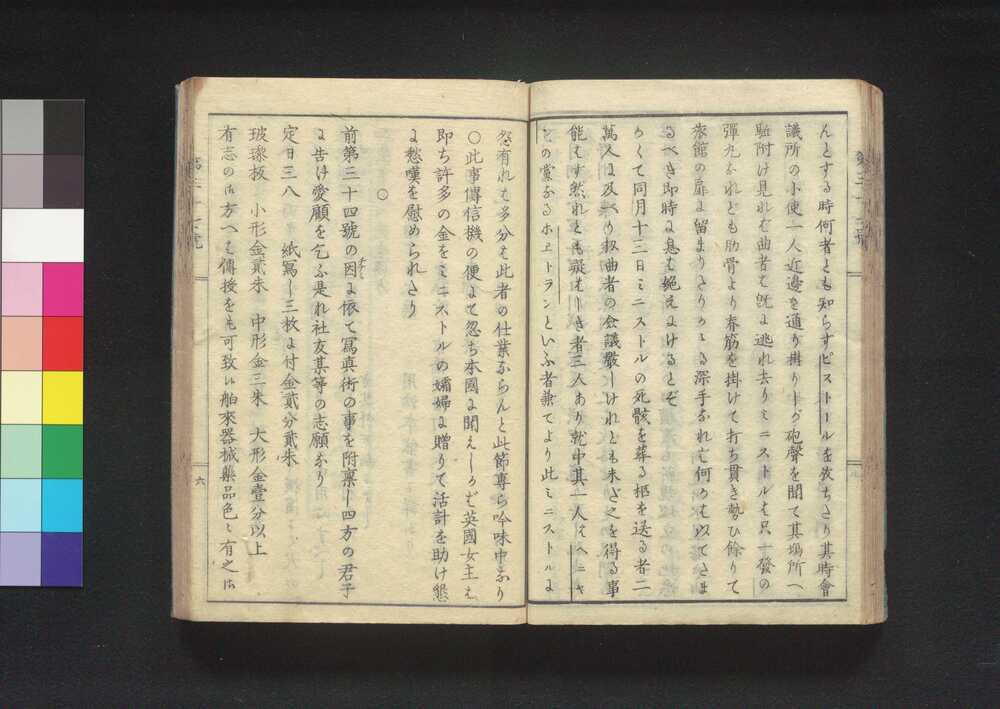 んとする時何者とも知らずピストールを放ちたり其時會
議所の小使一人近邊を通り掛りしが砲聲を聞て其場所へ
駈附け見れば曲者は既に逃れ去りミニストルは只一發の
彈丸なれども肋骨より脊筋を掛けて打ち貫き勢ひ餘りて
旅館の扉に留まりたりかゝる深手なれば何かは以てたま
るべき即時に息は絶えにけるとぞ
かくて同月十三日ミニストルの死骸を葬る柩を送る者二
萬人に及べり扨曲者の僉議嚴しけれども未だ之を得る事
能はず然れども疑はしき者三人あり就中其一人はヘニヤ
ンの黨なるホエトランといふ者兼てより此ミニストルに
怨有れば多分は此者の仕業ならんと此節專ら吟味中なり
○此事傳信機の便にて忽ち本國に聞えしかば英國女王は
即ち許多の金をミニストルの孀婦に贈りて活計を助け懇
に愁嘆を慰められたり
○
前第三十四號の因に依て寫真術の事を附禀し四方の君子
に告け愛顧を乞ふ是れ社友某等の志願なり
定日三八 紙寫し三枚に付金貳分貳朱
玻瓈板 小形金貳朱 中形金三朱 大形金壹分以上
有志の御方へは傳授をも可致候舶來器械藥品色々有之候
六